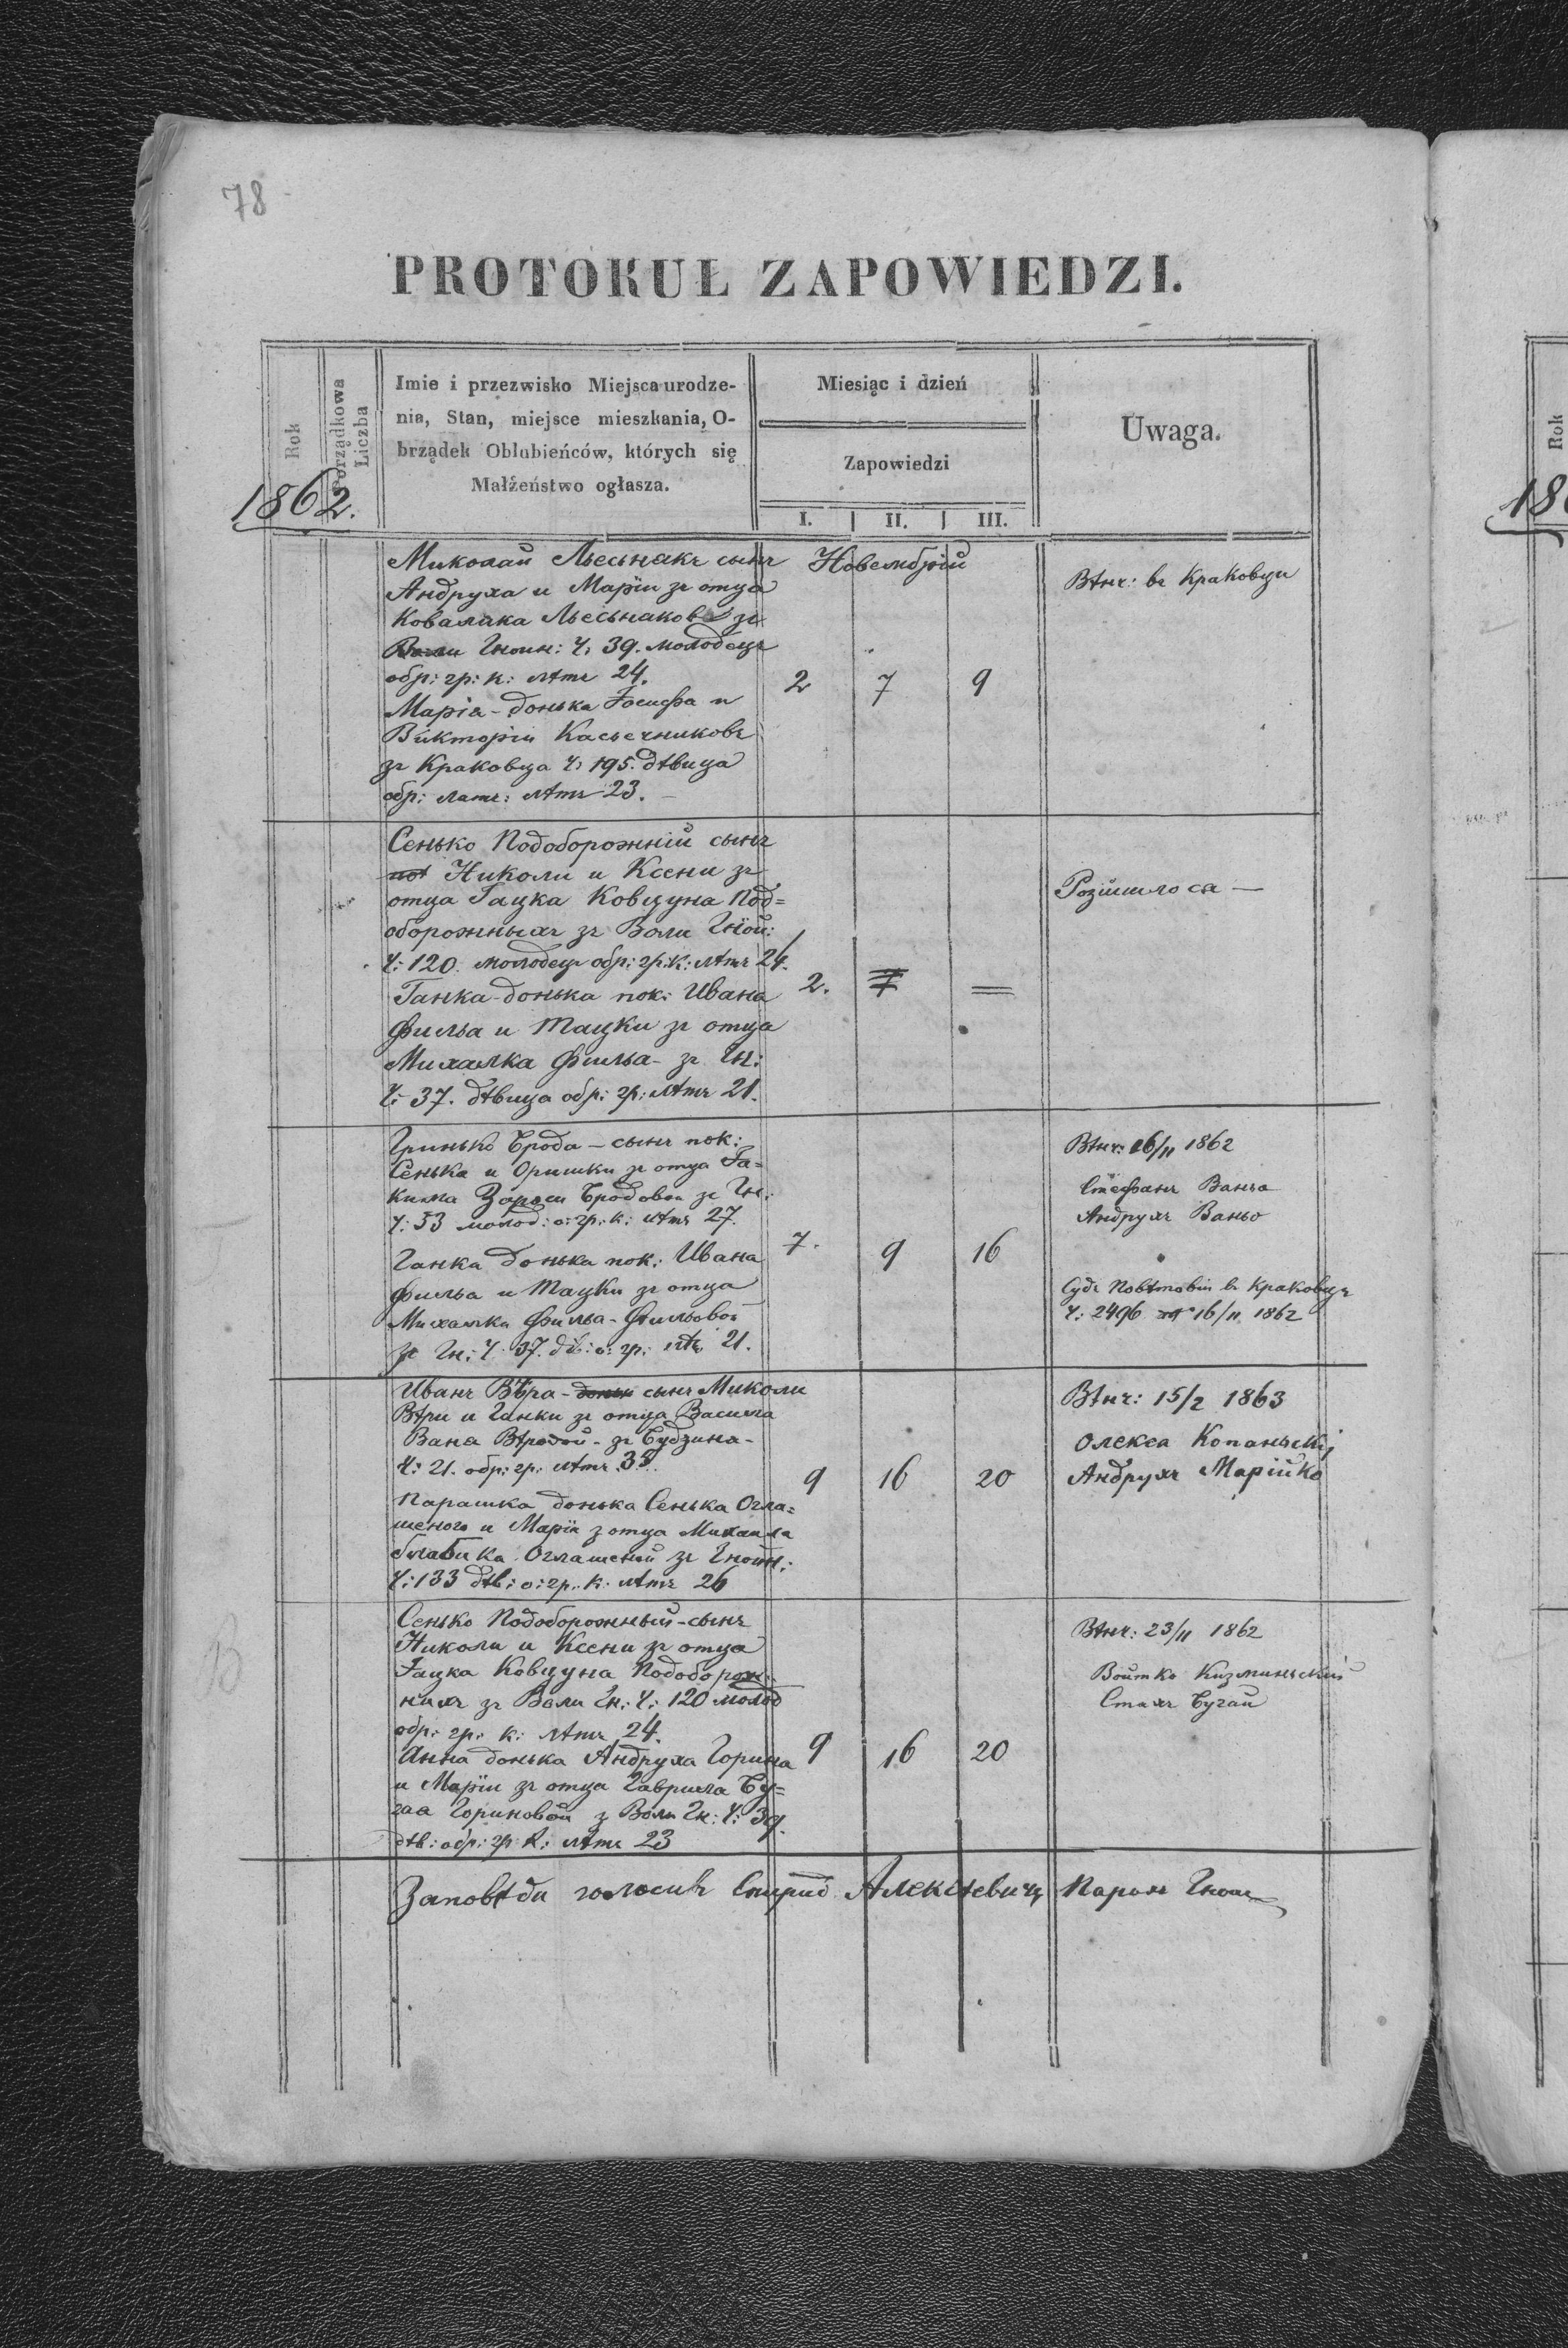 78
PROTOKUŁ ZAPOWIEDZI.
Rok
Porządkowa
Liczba
Imie i przezwisko Miejsca urodze-
nia, Stan, miejsce mieszkania, O-
brządek Obłubieńców, których się
Małżeństwo ogłasza.
Miesiąc i dzień
Zapowiedzi
I. II. III.
Uwaga.
1862.
Миколай Льесьнякъ сынъ
Андруха и Маріи зъ отца
Ковалика Льесьнаковъ зъ
Гноин: Ч: 39. молодецъ
обр: гр: к: лѣтъ 24.
Марія - донька Іосифа и
Викторіи Касьечниковъ
зъ Краковца Ч: 195. дѣвица
обр: лат: лѣтъ 23. —
Новембрій
2 7 9
Вѣнч: въ Краковци
Сенько Подоборожній сынъ
Николи и Ксени зъ
отца Гацка Ковцуна Под=
оборожныхъ зъ Воли Гной:
Ч: 120. молодецъ обр: гр: к: лѣтъ 24.
Ганка - донька пок: Ивана
Филья и Тацки зъ отца
Михалка Филья - зъ Гн:
Ч: 37. дѣвица обр: гр: лѣтъ 21.
2. 7 =
Розійшлося —
Гринько Брода - сынъ пок:
Сенька и Оришки зъ отца Іа=
кима Бродовъ зъ Гн:
Ч: 53 молод: о: гр: к: лѣтъ 27.
Ганка донька пок: Ивана
Филья и Тацки зъ отца
Михалка Филья - Фильовой
зъ Гн: Ч: 37. дѣв: о: гр: лѣтъ 21.
7. 9 16
Вѣнч: 16/11 1862
Стефанъ Ваньо
Андрухъ Ваньо
Судъ Повѣтовій въ Краковцъ
Ч: 2496 16/11 1862
Иванъ Вѣра - сынъ Миколи
Вѣри и Ганки зъ отца Василя
Вана Вѣровой - зъ Будзина -
Ч: 21. обр: гр: лѣтъ 35.
Парашка донька Сенька Огла=
шеного и Маріи з отца Михаила
Оглашеной зъ Гнойн:
Ч: 133 дѣв: о: гр: к: лѣтъ 26
9 16 20
Вѣнч: 15/2 1863
Олекса Копаньскій
Андрухъ Марійко
Сенько Подоборожный - сынъ
Николи и Ксени зъ отца
Гацка Ковцуна Подоборож-
нихъ зъ Воли Гн: Ч: 120 молод
обр: гр: к: лѣтъ 24.
Анна донька Андруха Горина
и Маріи зъ отца Гаврила Бу=
гая Гориновой з Воли Гн: Ч: 39.
дѣв: обр: гр: к: лѣтъ 23
9 16 20
Вѣнч: 23/11 1862
Войтко Кизминьскій
Стахъ Бугай
Заповѣди голосивъ Спирид Алексѣевичъ Парох Гноин
Rok
18